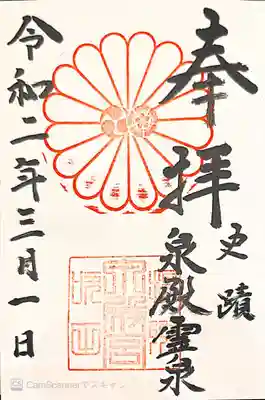 奉拝
史蹟
泉殿霊泉
令和二年三月一日
CamScannerでスキャン